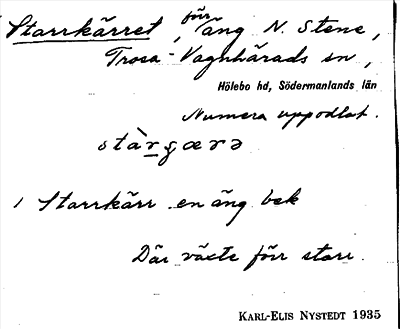 Starrkärret, förr äng N. Stene,
Trosa-Vagnhärads sn,
Hölebo hd, Södermanlands län
Numera uppodlat.
stàrꞔærə
1 Starrkärr en äng bek
Där växte förr starr.
KARL-ELIS NYSTEDT 1935